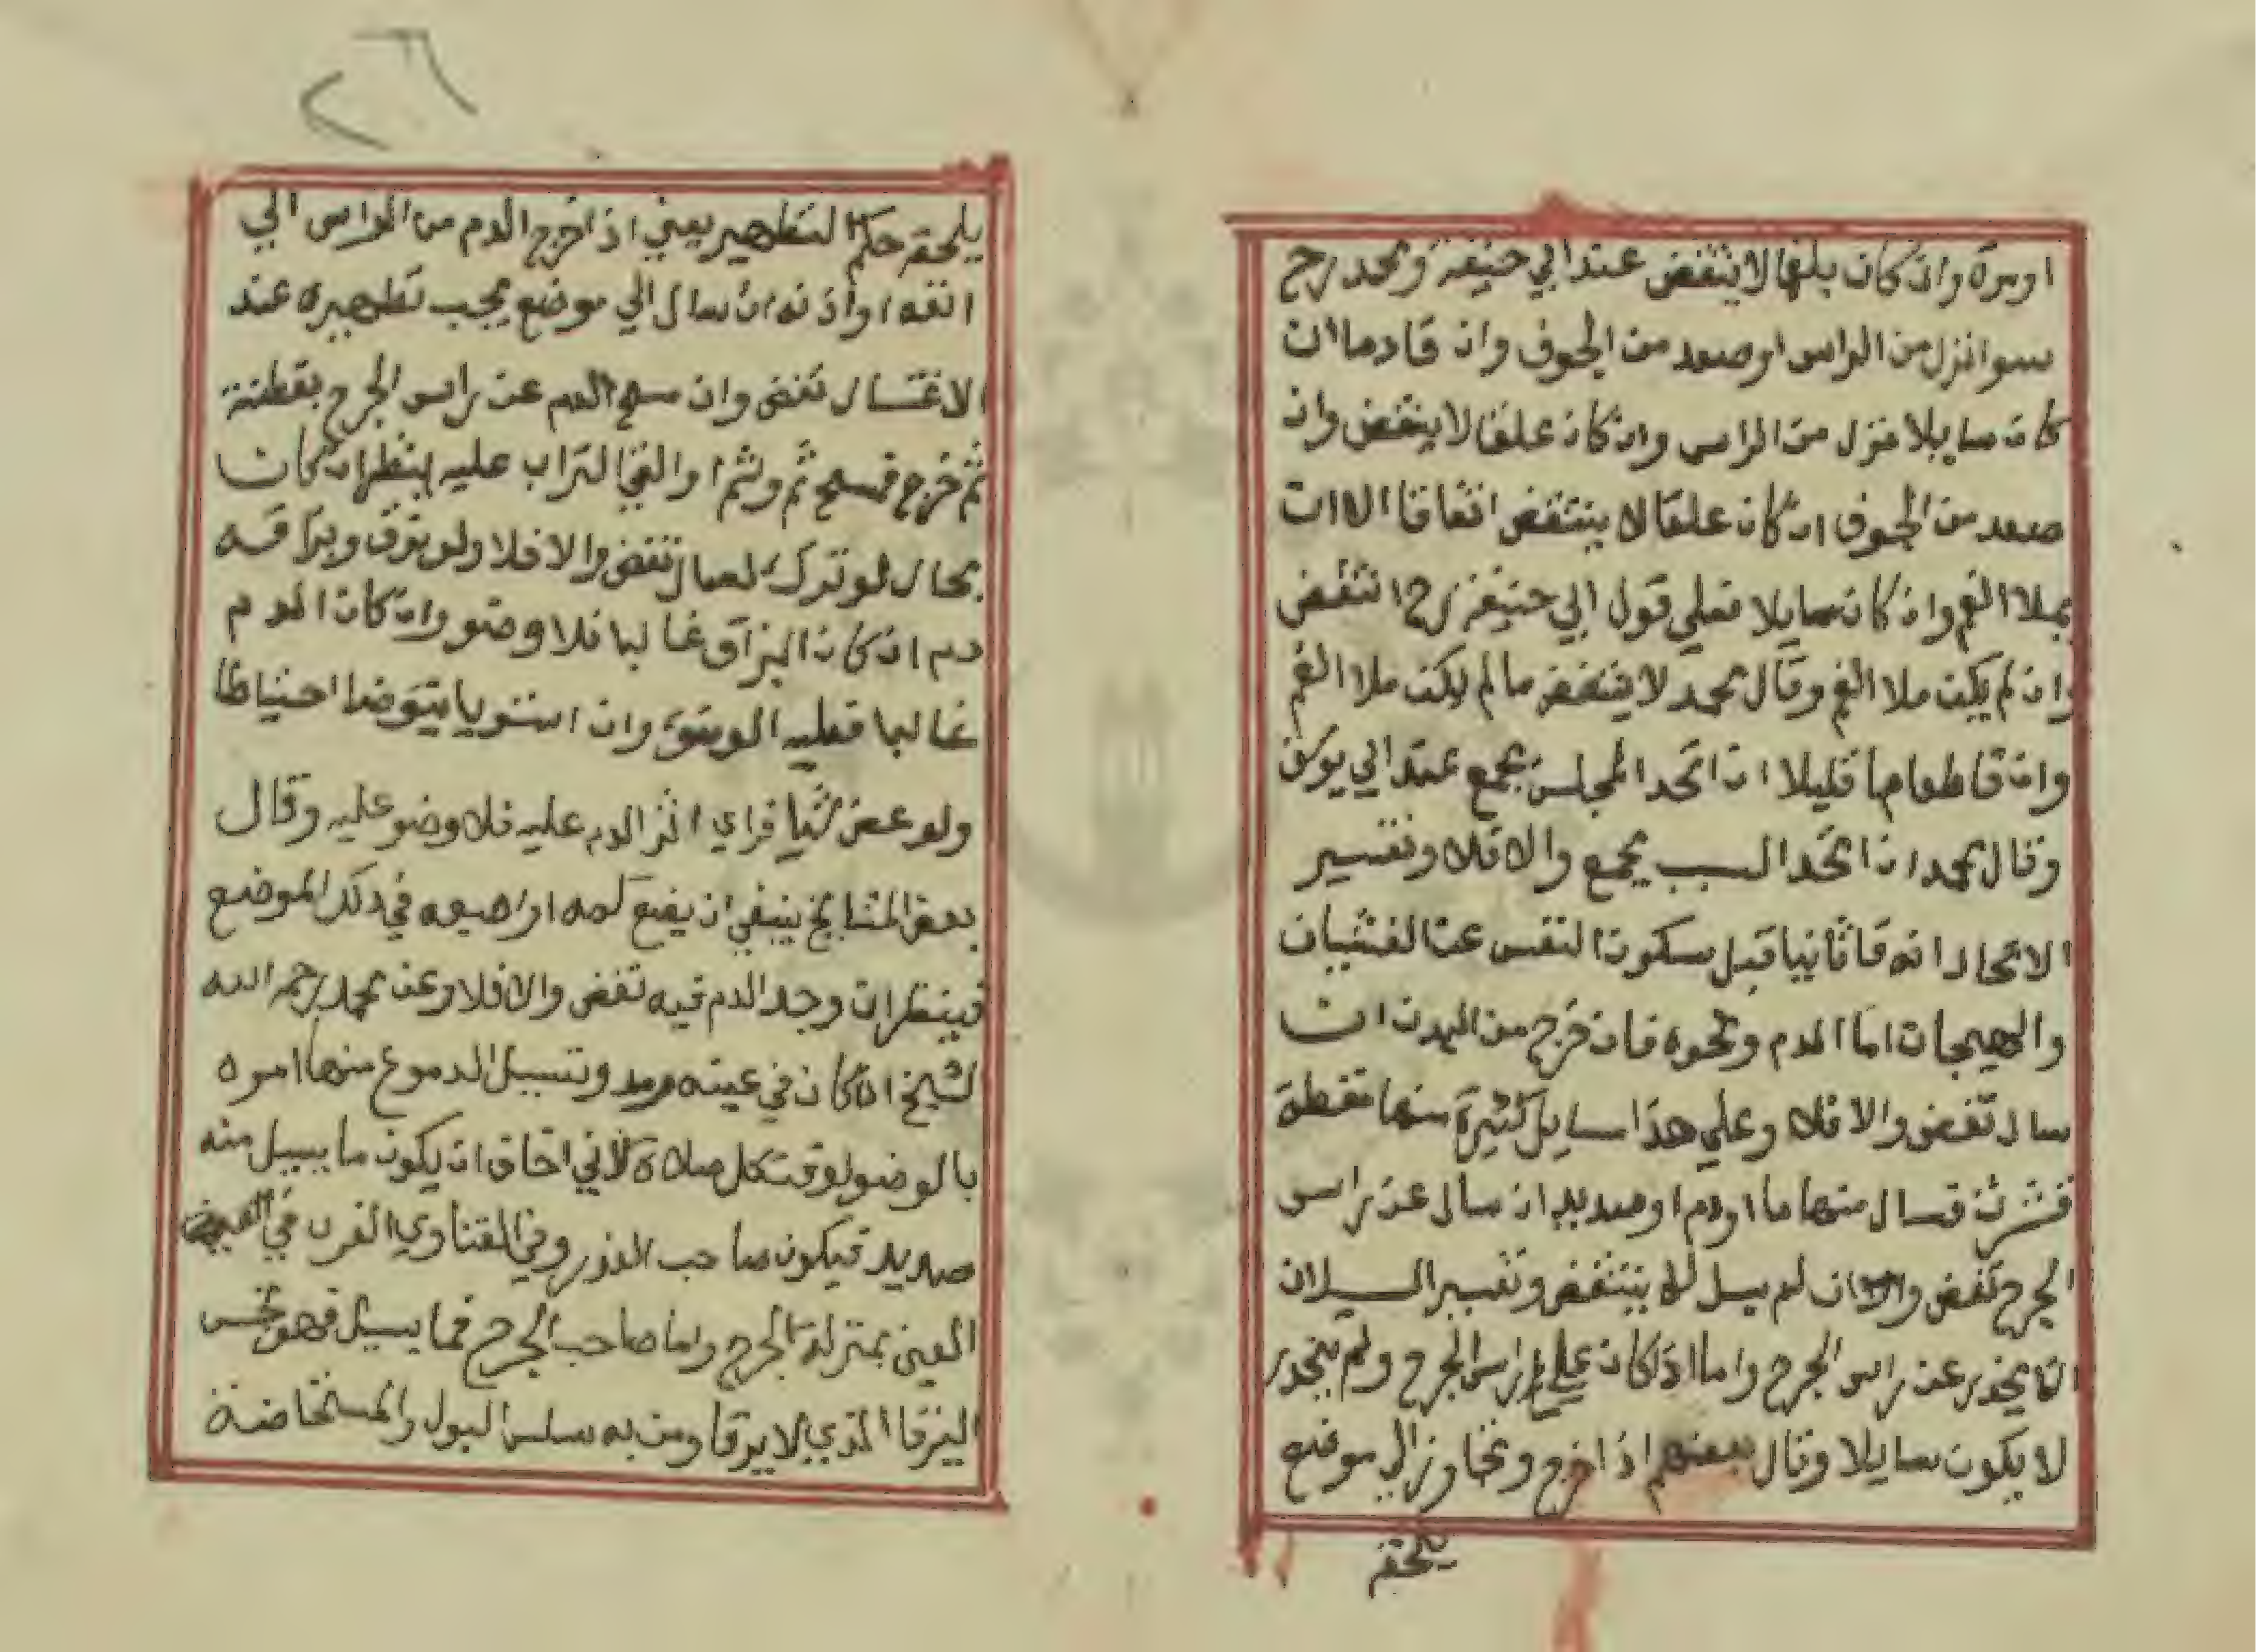 او مرة وان كان بلغما لا ينتقض عند ابي حنيفة ومحمد رح
سوا نزل من الراس او صعد من الجوف وان قا دما ان
كان سايلا نزل من الراس وان كان علقا لا ينقض وان
صعد من الجوف ان كان علقا لا ينتقض اتفاقا الا ان
يملا الفم وان كان سايلا فعلي قول ابي حنيفة رح انتقض
وان لم يكن ملا الفم وقال محمد لا ينتقض ما لم يكن ملا الفم
وان قا طعاما قليلا ان اتحد المجلس يجمع عند ابي يوسف
وقال محمد ان اتحد السبب يجمع والا فلا وتفسير
الاتحاد انه قا ثانيا قبل سكون النفس عن الغثيان
والهيجان اما الدم ونحوه فان خرج من البدن ان
سال تقض والا فلا وعلي هذا مسايل كثيرة منها نفطة
قشرت فسال منها ما او دم او صديد ان سال عن راس
الجرح تقض وان لم يسل لا ينتقض وتفسير السيلان
ان ينحدر عن راس الجرح واما اذا كان علي راس الجرح ولم ينحدر
لا يكون سايلا وقال بعضهم اذا خرج وتجاوز الي موضع
يلحقه
٢٦
يلحقه حكم التطهير يعني اذا خرج الدم من الراس الي
انفه او اذنه ان سال الي موضع يجب تطهيره عند
الاغتسال تقض وان مسح الدم عن راس الجرح بقطنة
ثم خرج فمسح ثم وثم او القي التراب عليه ينظر ان كان
بحال لو تركه لسال تقض والا فلا ولو بزق وبزاقه
دم ان كان البزاق غالبا فلا وضو وان كان الدم
غالبا فعليه الوضو وان استويا يتوضا احتياطا
ولو عض شيا فراي اثر الدم عليه فلا وضو عليه وقال
بعض المشايخ ينبغي ان يضع كمه او اصبعه في ذلك الموضع
فينظر ان وجد الدم فيه تقض والا فلا وعن محمد رحمه الله
الشيخ اذا كان في عينه رمد وتسيل الدموع منها امره
بالوضو لوقت كل صلاة لأني اخاف ان يكون ما يسيل منه
صديد فيكون صاحب العذر وفي الفتاوي الغرب في
العين بمنزلة الجرح واما صاحب الجرح فما يسيل فهو نجس
الذي لا يرقا ومن به سلس البول والمستحاضة